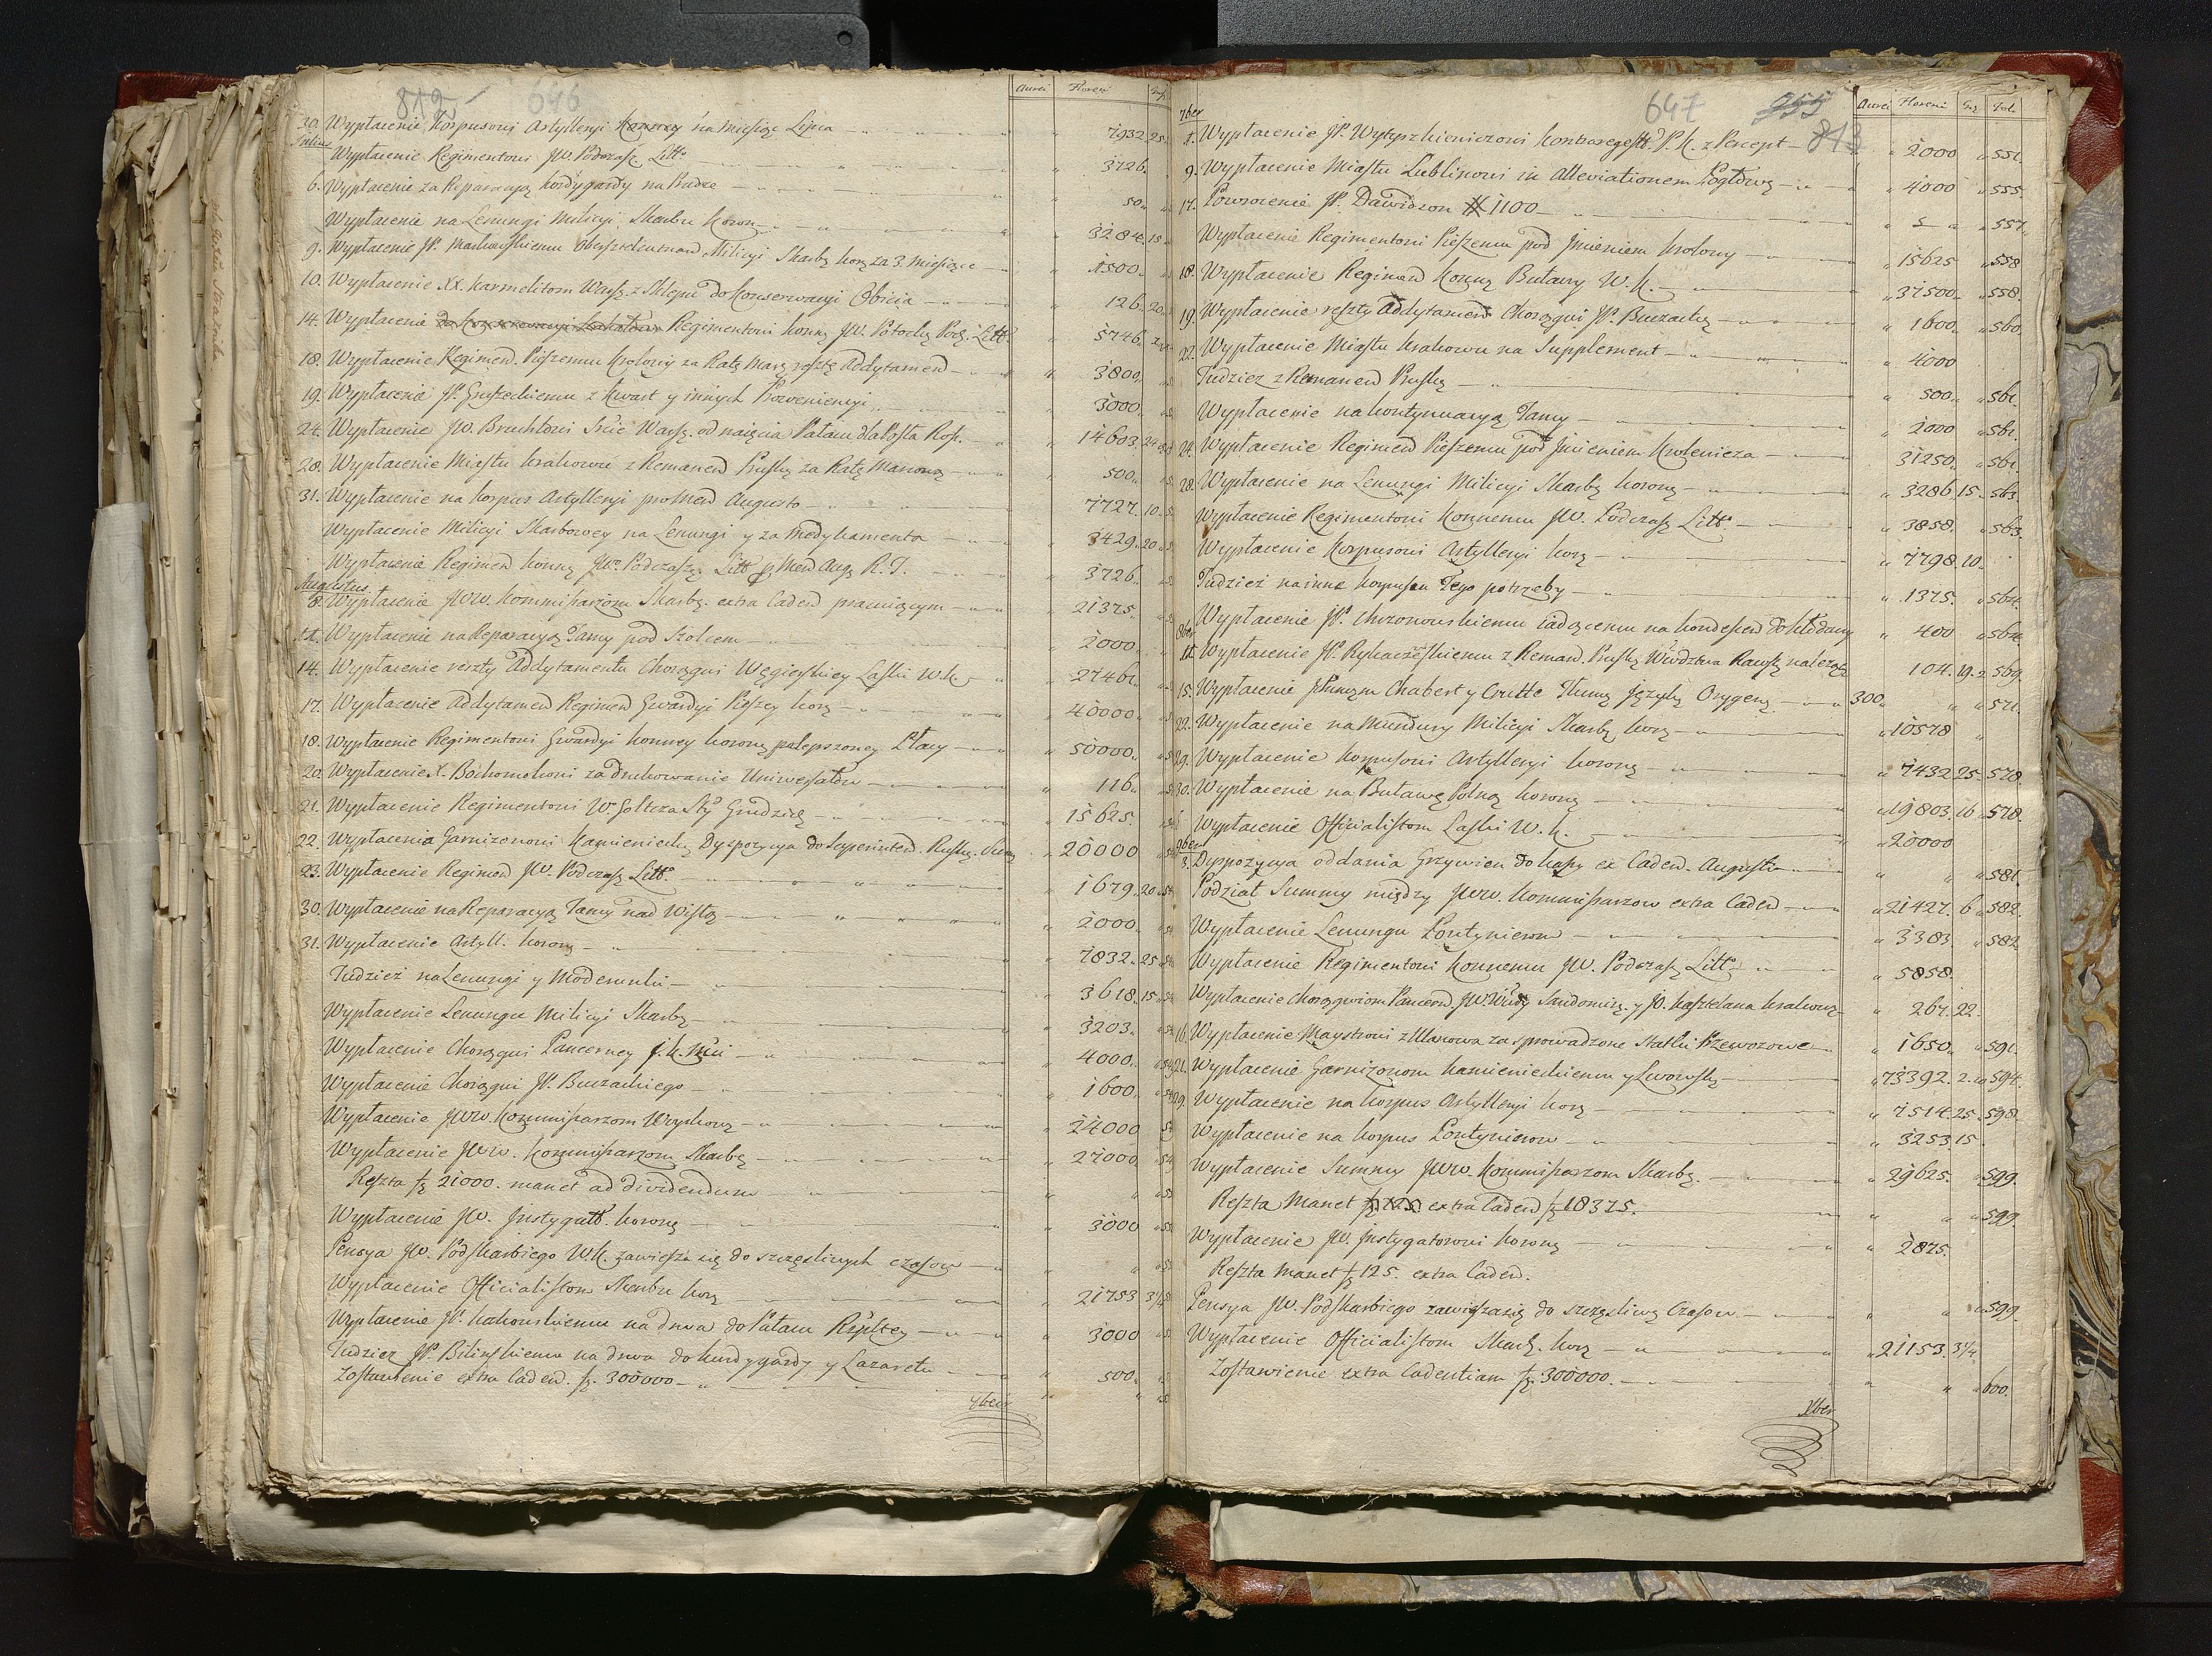 812 646
Aurei Floreni Gr.
30. Wypłacenie Korpusowi Artylleryi Koronney na Miesiąc Lipca 7932 25
Julius
Wypłacenie Regimentowi JW. Podczasz. Litt. 3726.
6. Wypłacenie za Reparacyą Kordygardy na Pradze 50
Wypłacenie na Lenungi Milicyi Skarbu Koron. 3284. 15
9. Wypłacenie JP. Markowskiemu Obersztleutnand Milicyi Skarb. Kor. za 3. Miesiące 1500.
10. Wypłacenie XX. Karmelitom Warsz. z Sklepu do Konserwacyi Obicia 126. 20
14. Wypłacenie Regimentowi Konn. JW. Potocky Podcz. Litt. 5746.
18. Wypłacenie Regimend. Pieszemu Krolowy za Ratę Marc. resztę Addytamend 3800.
19. Wypłacenie JP. Gruszeckiemu z Kwart y innych Proweniencyi 3000.
24. Wypłacenie JW. Bruchlowi Srcie Warsz. od naięcia Pałacu dla Posła Ros. 14603. 24
28. Wypłacenie Miastu Krakowu z Remanend Prusky za Ratę Marcową 500.
31. Wypłacenie na Korpus Artylleryi pro Mend Augusto 7727. 10
Wypłacenie Milicyi Skarbowey na Lenungi y za Medykamenta 3429. 20
Wypłacenie Regimend Konny JWo Podczaszy Litt p. Mend Aug. R. T. 3726.
Augustus
8. Wypłacenie JWW. Kommissarzom Skarb. extra Cadend pracuiącym 21375.
11. Wypłacenie na Reparacyą Tamy pod Szolcem 2000.
14. Wypłacenie reszty Addytamentu Chorągwi Węgierskiey Laski W. K. 27461.
17. Wypłacenie Addytamend Regimend Gwardyi Pieszey Kor. 40000.
18. Wypłacenie Regimentowi Gwardyi Konney Koronn. polepszoney Płacy 50000.
20. Wypłacenie X. Bohomolcowi za drukowanie Uniwersałow 116.
21. Wypłacenie Regimentowi W. Goltza Sty Grudzie 15625.
22. Wypłacenia Garnizonowi Kamienieck. Dyspozycya do Superintend. Rusk. 20000
23. Wypłacenie Regimend JW. Podczasz. Litt. 1679. 20
30. Wypłacenie na Reparacyą Tamy nad Wisłą 2000.
31. Wypłacenie Artyll. Koron. 7832. 25
Tudzież na Lenungi y Moderunki 3618. 15
Wypłacenie Lenungu Milicyi Skarb. 3203.
Wypłacenie Chorągwi Pancerney J. K. Mci 4000.
Wypłacenie Chorągwi JP. Buczackiego 1600.
Wypłacenie JWW. Kommissarzom Woyskow. 24000
Wypłacenie JWW. Kommissarzom Skarb. 27000
Reszta f. 21000. manet ad dividendum
Wypłacenie JW. Instygatt. Koron. 3000
Pensya JW. Podskarbiego W. K. zawiesza się do szczęśliwych czasow
Wypłacenie Officialistom Skarbu Kor. 21753 3¼
Wypłacenie JP. Kakowskiemu na drwa do Pałacu Rzpltey 3000
Tudzież JP. Bilińskiemu na drwa do Kurdygardy y Lazaretu 500.
Zostawienie extra Cadend. f. 300000.
7ber
647 355 813
Aurei Floreni Gr. Fol.
7ber
1. Wypłacenie JP. Wytyszkiewiczowi Kontraregestt. P. K. z Percept 2000 551.
9. Wypłacenie Miastu Lublinowi in Alleviationem Pogłowg 4000 555.
17. Powrocenie JP. Dawidson # 1100 557.
Wypłacenie Regimentowi Pieszemu pod Jmieniem Krolowy 15625 558
18. Wypłacenie Regimend Konny Buławy W. K. 37500. 558.
19. Wypłacenie reszty Addytamend Chorągwi JP. Buczacky 1600. 560.
22. Wypłacenie Miastu Krakowu na Supplement 4000
Tudzież z Remanend Prusky 500. 561.
Wypłacenie na Kontynuacyą Tamy 2000 561.
24. Wypłacenie Regimend Pieszemu pod Jmieniem Krolewicza 31250. 561.
28. Wypłacenie na Lenungi Milicyi Skarb. Koron. 3286. 15 563.
Wypłacenie Regimentowi Konnemu JW. Podczasz. Litt. 3858. 563.
Wypłacenie Korpusowi Artylleryi Kor. 7798. 10.
Tudzież na inne Korpusu Tego potrzeby 1375. 564.
Wypłacenie JP. Chrzonowskiemu iadącemu na Kondescend do Kłodawy 400 564.
8ber
11. Wypłacenie JP. Rykaczeskiemu z Remand. Prusky Wwdztwa Rawsk. należąc. 104. 19. 2 569.
15. Wypłacenie JPanom Chabert y Crutte Tłumą Języky Oryyeng 300. 571.
22. Wypłacenie na Mundury Milicyi Skarb. Kor. 10578
29. Wypłacenie Korpusowi Artylleryi Koron. 7432 25. 578.
30. Wypłacenie na Buławę Polną Koron. 19803. 16 578.
Wypłacenie Officialistom Laski W. K. 20000
9ber
3. Dyspozycya oddania Grzywien do Kassy ex Cadend. Augusti 581.
Podział Summy między JWW. Kommissarzow extra Cadend 21427. 6 582.
Wypłacenie Lenungu Pontynierow 3383. 582
Wypłacenie Regimentowi Konnemu JW. Podczasz. Litt. 5858.
Wypłacenie Chorągwiom Pancernd. JW. Wdy Sandomirs. y JP. Kasztelana Krakows. 267. 22.
16. Wypłacenie Maystrowi z Ulanowa za sprowadzone Statki Przewozowe 1650. 591.
21. Wypłacenie Garnizonom Kamienieckiemu y Lwowsky 73392. 2. 594.
29. Wypłacenie na Korpus Artylleryi Kor. 7514. 25. 598.
Wypłacenie na Korpus Pontynierow 3253. 15
Wypłacenie Summy JWW. Kommissarzom Skarb. 29625. 599.
Reszta Manet extra Cadend f. 18375. 599.
Wypłacenie JW. Instygatorowi Koron. 2875.
Reszta Manet f. 125. extra Cadend.
Pensya JW. Podskarbiego zawiesza się do szczęśliwy Czasow. 599
Wypłacenie Officialistom Skarb. Kor. 21153. 3¼
Zostawienie extra Cadentiam f. 300000. 600.
Xber